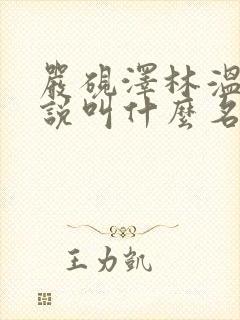 嚴硯澤林溫
說叫什麼名
王力凱